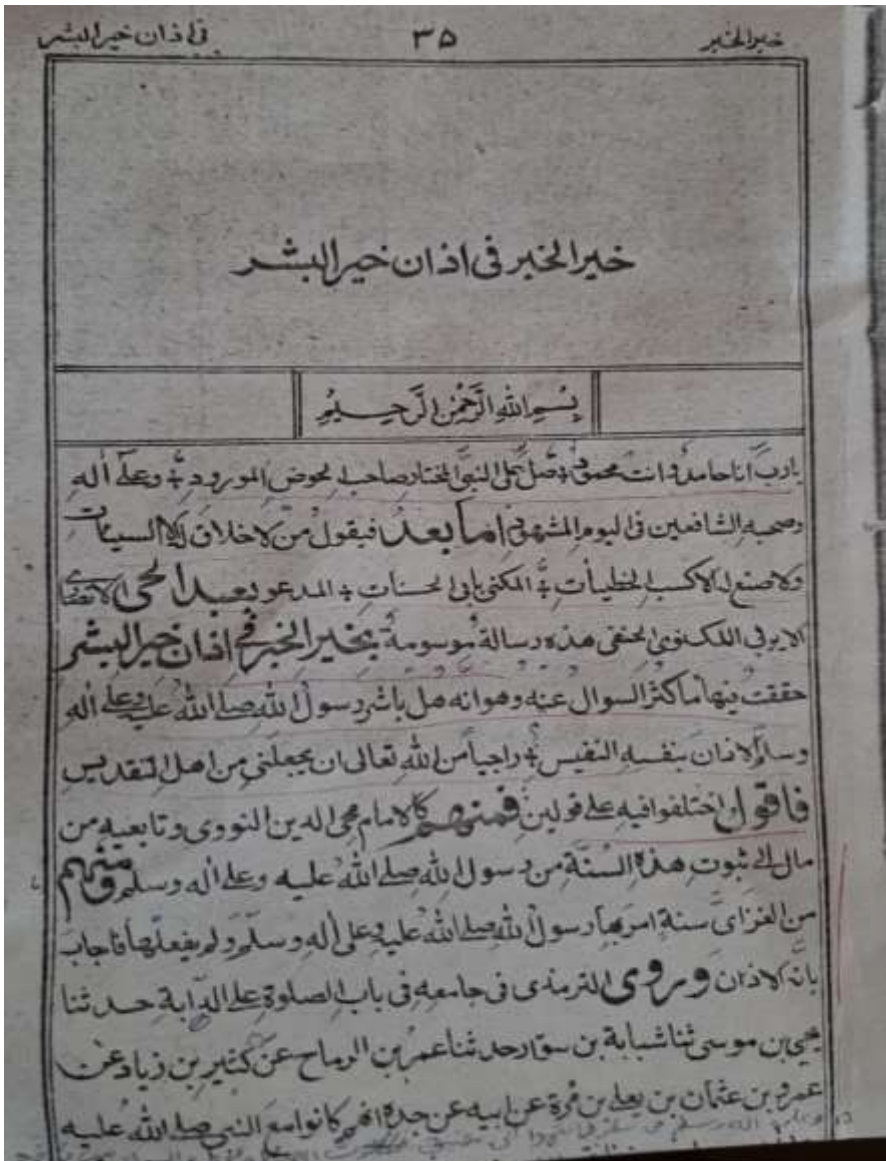 خيرالخبر ٣٥ فى اذان خيرالبشر
خيرالخبر فى اذان خيرالبشر
بِسْمِ اللهِ الرَّحْمٰنِ الرَّحِيْمِ
يارب انا حامد وانت محمود فصل على النبى المختار صاحب الحوض المورود وعلى اله
وصحبه الشافعين فى اليوم المشهود اما بعد فيقول من لاخلاق له الا السيئات
ولا صنع له الا كسب الخطيأت المكنى بابى الحسنات المدعو بعبد الحى الانصارى
الايوبى اللكنوى الحنفى هذه رسالة موسومة بخير الخبر فى اذان خير البشر
حققت فيها ما كثر السوال عنه وهوانه هل باشر رسول الله صلى الله عليه وعلى اله
وسلم الاذان بنفسه النفيس راجيا من الله تعالى ان يجعلنى من اهل التقديس
فاقول اختلفوا فيه على قولين فمنهم كالامام محى الدين النووى وتابعيه من
مال الى ثبوت هذه السنة من رسول الله صلى الله عليه وعلى اله وسلم ومنهم
من الغز اى سنة امر بها رسول الله صلى الله عليه وعلى اله وسلم ولم يفعلها فاجاب
بانه الاذان وروى الترمذى فى جامعه فى باب الصلوة على الدابة حدثنا
يحيى بن موسى ثنا شبابة بن سوار حدثنا عمر بن الرماح عن كثير بن زياد عن
عمرو بن عثمان بن يعلى بن مرة عن ابيه عن جده انهم كانوا مع النبى صلى الله عليه